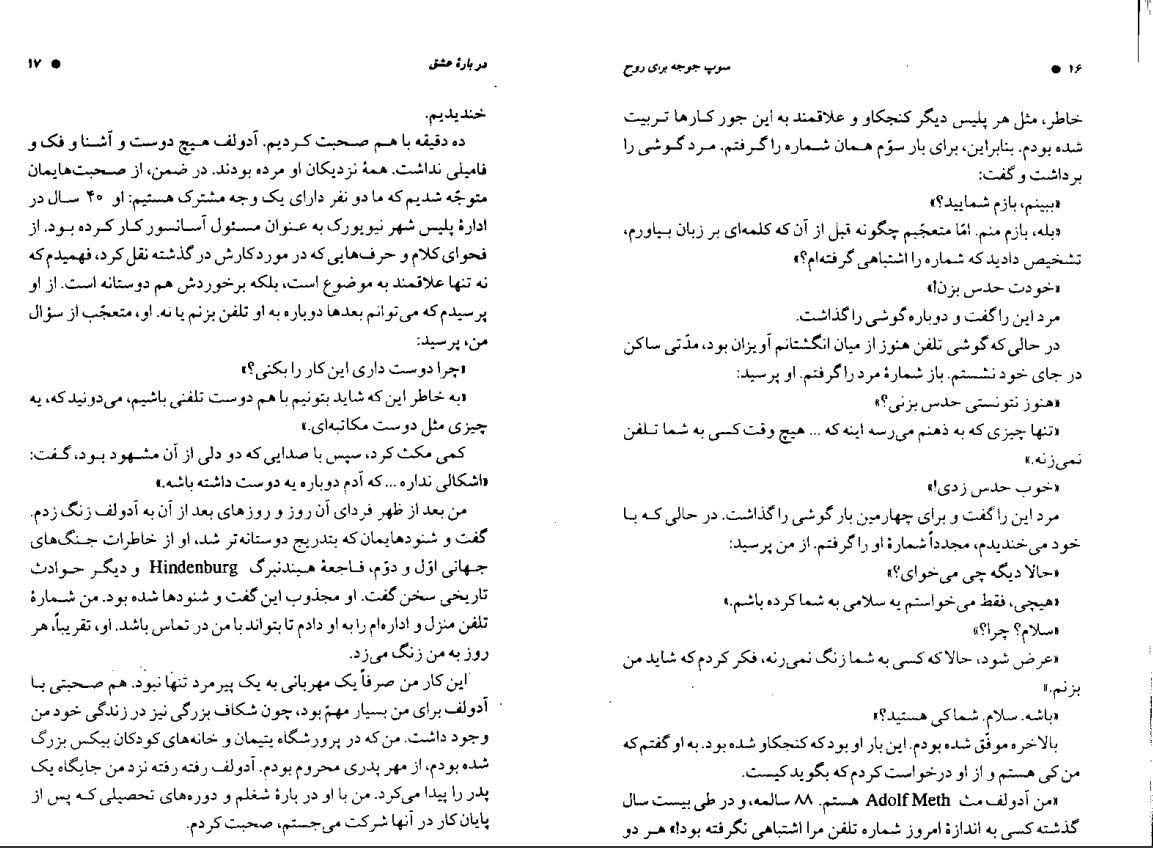 ۱۶ ● سوپ جوجه برای روح
خاطر، مثل هر پلیس دیگر کنجکاو و علاقمند به این جور کارها تربیت
شده بودم. بنابراین، برای بار سوّم همان شماره را گرفتم. مرد گوشی را
برداشت و گفت:
«ببینم، بازم شمایید؟»
«بله، بازم منم. امّا متعجّبم چگونه قبل از آن که کلمه‌ای بر زبان بیاورم،
تشخیص دادید که شماره را اشتباهی گرفته‌ام؟»
«خودت حدس بزن!»
مرد این را گفت و دوباره گوشی را گذاشت.
در حالی که گوشی تلفن هنوز از میان انگشتانم آویزان بود، مدّتی ساکن
در جای خود نشستم. باز شمارهٔ مرد را گرفتم. او پرسید:
«هنوز نتونستی حدس بزنی؟»
«تنها چیزی که به ذهنم می‌رسه اینه که ... هیچ وقت کسی به شما تلفن
نمی‌زنه.»
«خوب حدس زدی!»
مرد این را گفت و برای چهارمین بار گوشی را گذاشت. در حالی که با
خود می‌خندیدم، مجدداً شمارهٔ او را گرفتم. از من پرسید:
«حالا دیگه چی می‌خوای؟»
«هیچی، فقط می‌خواستم یه سلامی به شما کرده باشم.»
«سلام؟ چرا؟»
«عرض شود، حالا که کسی به شما زنگ نمی‌زنه، فکر کردم که شاید من
بزنم.»
«باشه. سلام. شما کی هستید؟»
بالاخره موفّق شده بودم. این بار او بود که کنجکاو شده بود. به او گفتم که
من کی هستم و از او درخواست کردم که بگوید کیست.
«من آدولف مث Adolf Meth هستم. ۸۸ سالمه، و در طی بیست سال
گذشته کسی به اندازهٔ امروز شماره تلفن مرا اشتباهی نگرفته بود!» هر دو
دربارهٔ عشق ● ۱۷
خندیدیم.
ده دقیقه با هم صحبت کردیم. آدولف هیچ دوست و آشنا و فک و
فامیلی نداشت. همهٔ نزدیکان او مرده بودند. در ضمن، از صحبت‌هایمان
متوجّه شدیم که ما دو نفر دارای یک وجه مشترک هستیم: او ۴۰ سال در
ادارهٔ پلیس شهر نیویورک به عنوان مسئول آسانسور کار کرده بود. از
فحوای کلام و حرف‌هایی که در مورد کارش در گذشته نقل کرد، فهمیدم که
نه تنها علاقمند به موضوع است، بلکه برخوردش هم دوستانه است. از او
پرسیدم که می‌توانم بعدها دوباره به او تلفن بزنم یا نه. او، متعجّب از سؤال
من، پرسید:
«چرا دوست داری این کار را بکنی؟»
«به خاطر این که شاید بتونیم با هم دوست تلفنی باشیم، می‌دونید که، یه
چیزی مثل دوست مکاتبه‌ای.»
کمی مکث کرد، سپس با صدایی که دو دلی از آن مشهود بود، گفت:
«اشکالی نداره ... که آدم دوباره یه دوست داشته باشه.»
من بعد از ظهر فردای آن روز و روزهای بعد از آن به آدولف زنگ زدم.
گفت و شنودهایمان که بتدریج دوستانه‌تر شد، او از خاطرات جنگ‌های
جهانی اوّل و دوّم، فاجعهٔ هیندنبرگ Hindenburg و دیگر حوادث
تاریخی سخن گفت. او مجذوب این گفت و شنودها شده بود. من شمارهٔ
تلفن منزل و اداره‌ام را به او دادم تا بتواند با من در تماس باشد. او، تقریباً، هر
روز به من زنگ می‌زد.
این کار من صرفاً یک مهربانی به یک پیرمرد تنها نبود. هم صحبتی با
آدولف برای من بسیار مهمّ بود، چون شکاف بزرگی نیز در زندگی خود من
وجود داشت. من که در پرورشگاه یتیمان و خانه‌های کودکان بیکس بزرگ
شده بودم، از مهر پدری محروم بودم. آدولف رفته رفته نزد من جایگاه یک
پدر را پیدا می‌کرد. من با او در بارهٔ شغلم و دوره‌های تحصیلی که پس از
پایان کار در آنها شرکت می‌جستم، صحبت کردم.